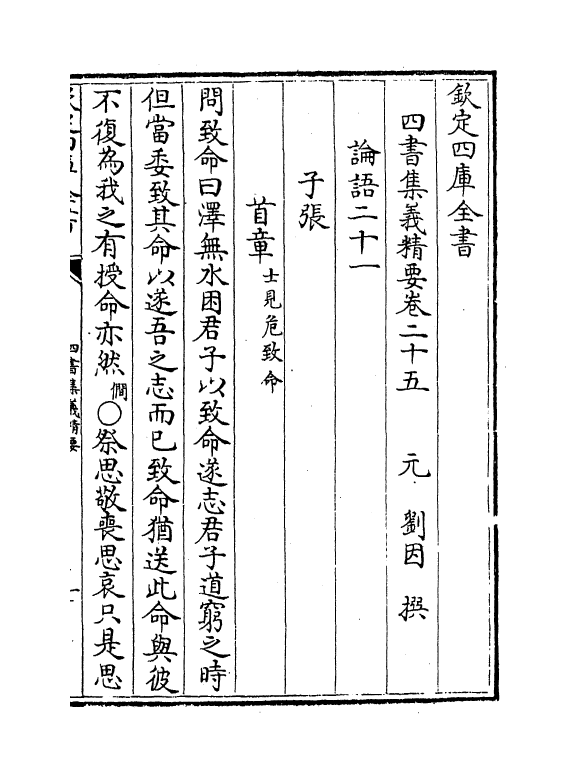 欽定四庫全書
四書集義精要卷二十五 元 劉因 撰
論語二十一
子張
首章 士見危致命
問致命曰澤無水困君子以致命遂志君子道窮之時
但當委致其命以遂吾之志而已致命猶送此命與彼
不復為我之有授命亦然 僩 ○祭思敬喪思哀只是思
四書集義精要
一